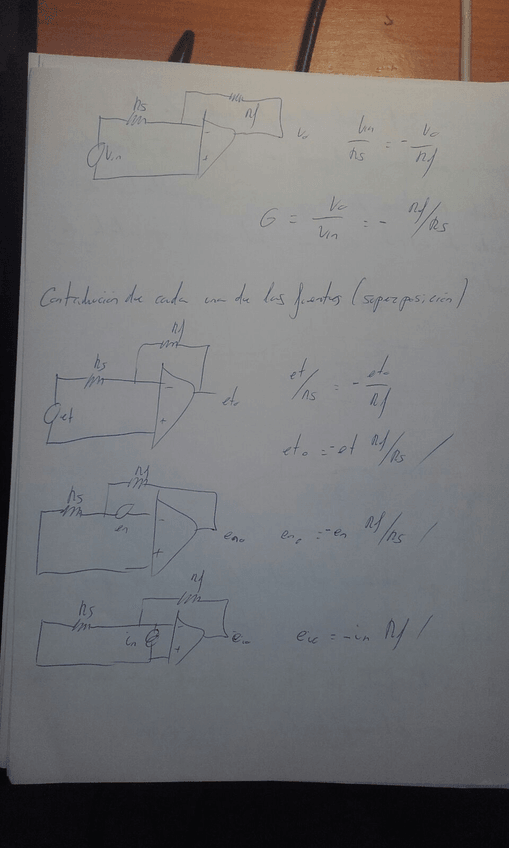 Rs
Rf
Vin
Vo
Vin/Rs = - Vo/Rf
G = Vo/Vin = - Rf/Rs
Contribución de cada una de las fuentes (superposición)
Rf
Rs
et
eto
et/Rs = - eto/Rf
eto = -et Rf/Rs /
Rf
Rs
en
eno
eno = -en Rf/Rs /
Rf
Rs
in
= -in Rf /